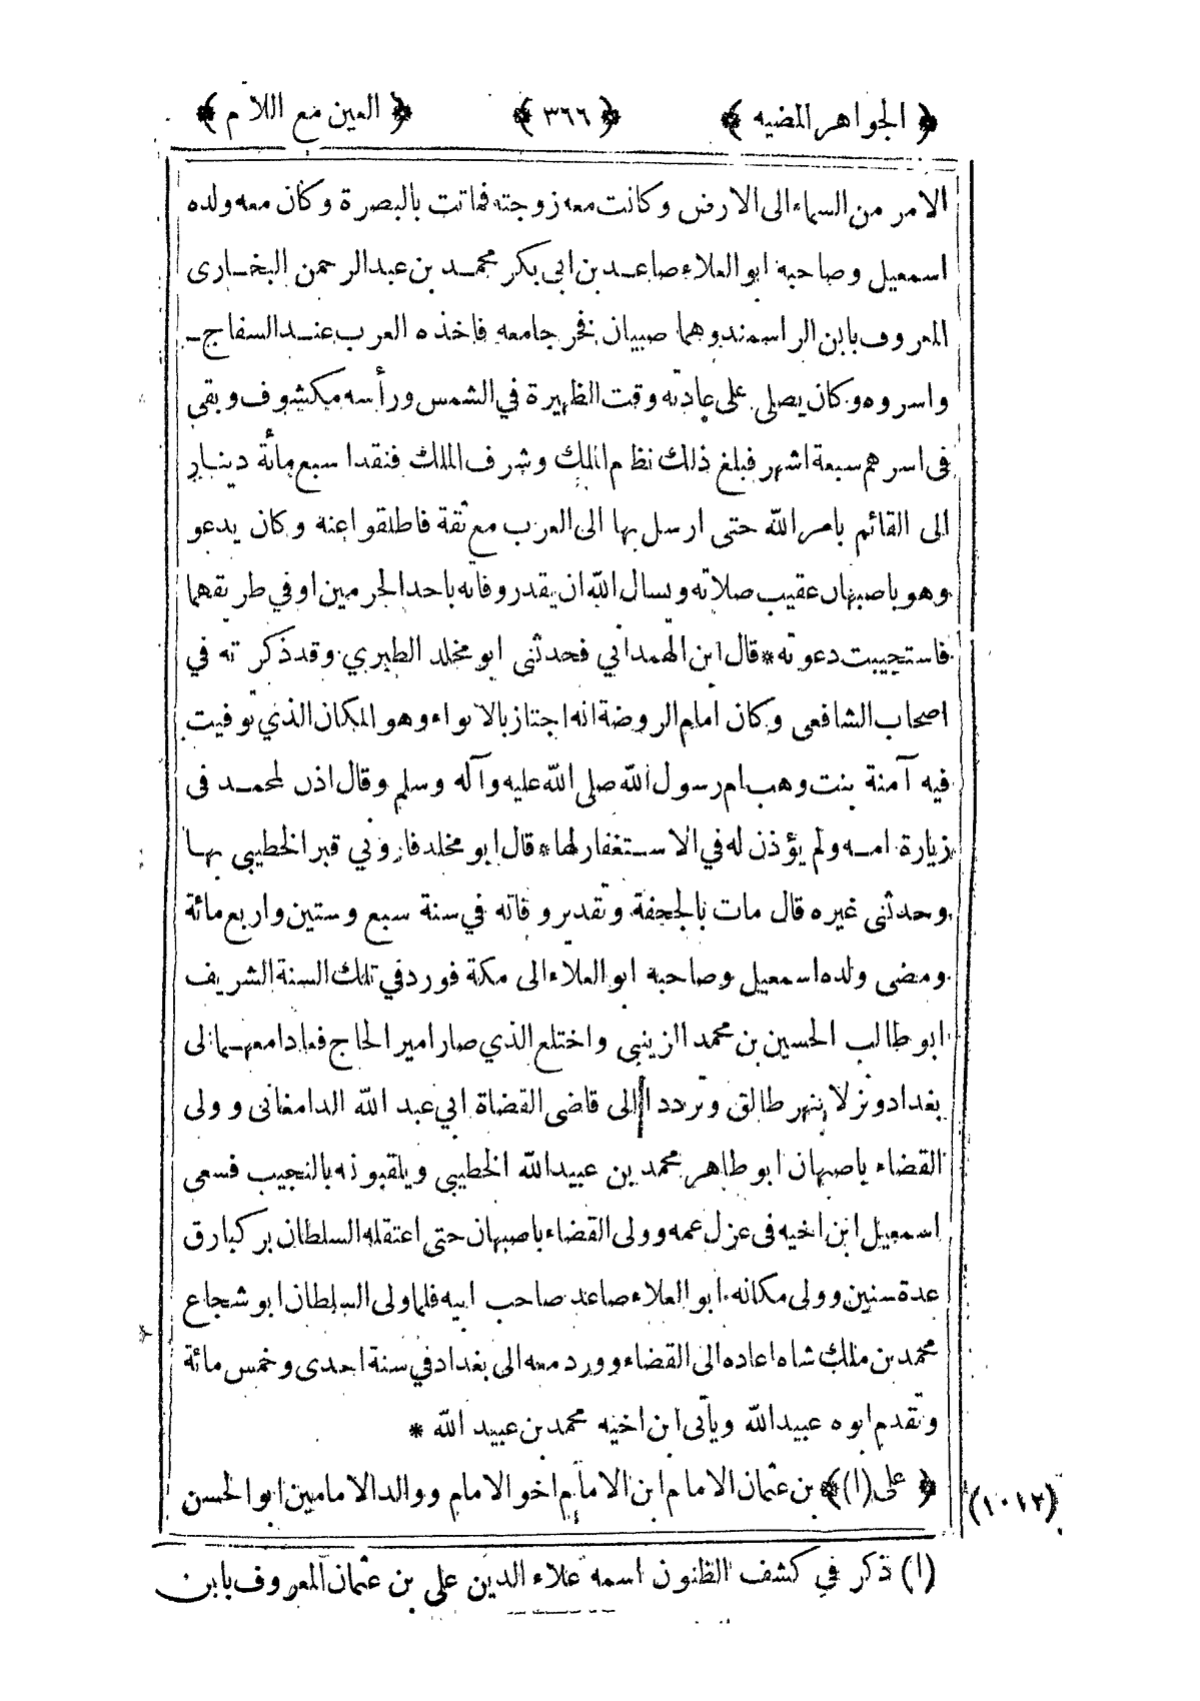 ﴿ الجواهر المضيه ﴾ ﴿ ٣٦٦ ﴾ ﴿ العين مع اللام ﴾
الامر من السماء الى الارض وكانت معه زوجته فماتت بالبصرة وكان معه ولده
اسمعيل وصاحبه ابو العلاء صاعد بن ابى بكر محمد بن عبد الرحمن البخارى
المعروف بابن الراسمندو وهما صبيان فخر جامعه فاخذه العرب عند السفاج
واسروه وكان يصلى على عادته وقت الظهيرة في الشمس ورأسه مكشوف وبقى
فى اسرهم سبعة اشهر فبلغ ذلك نظام الملك وشرف الملك فنقدا سبع مأئة دينار
الى القائم بامر الله حتى ارسل بها الى العرب مع ثقة فاطلقوا عنه وكان يدعو
وهو باصبهان عقيب صلاته ويسال الله ان يقدر وفاته باحد الحرمين او في طريقهما
فاستجيبت دعوته * قال ابن الهمدانى فحدثنى ابو مخلد الطبري وقد ذكر ته في
اصحاب الشافعى وكان امام الروضة انه اجتاز بالابواء وهو المكان الذي توفيت
فيه آمنة بنت وهب ام رسول الله صلى الله عليه وآله وسلم وقال اذن لمحمد فى
زيارة امه ولم يؤذن له في الاستغفار لها * قال ابو مخلد فاروني قبر الخطيبى بها
وحدثنى غيره قال مات بالجحفة وتقدير وفاته في سنة سبع وستين واربع مائة
ومضى ولده اسمعيل وصاحبه ابو العلاء الى مكة فورد في تلك السنة الشريف
ابو طالب الحسين بن محمد الزينبى واختلع الذي صار امير الحاج فعادا معهما الى
بغداد ونزلا بنهر طالق وتردد االى قاضى القضاة ابي عبد الله الدامغانى وولى
القضاء باصبهان ابو طاهر محمد بن عبيد الله الخطيبى ويلقبونه بالنجيب فسعى
اسمعيل ابن اخيه فى عزل عمه وولى القضاء باصبهان حتى اعتقله السلطان بركيارق
عدة سنين وولى مكانه ابو العلاء صاعد صاحب ابيه فلما ولى السلطان ابو شجاع
محمد بن ملك شاه اعاده الى القضاء وورد معه الى بغداد في سنة احدى وخمس مائة
وتقدم ابوه عبيد الله ويأتى ابن اخيه محمد بن عبيد الله *
﴿ على (١) ﴾ بن عثمان الامام ابن الامام اخو الامام ووالد الامامين ابو الحسن (١٠١٢)
(١) ذكر في كشف الظنون اسمه علاء الدين على بن عثمان المعروف بابن